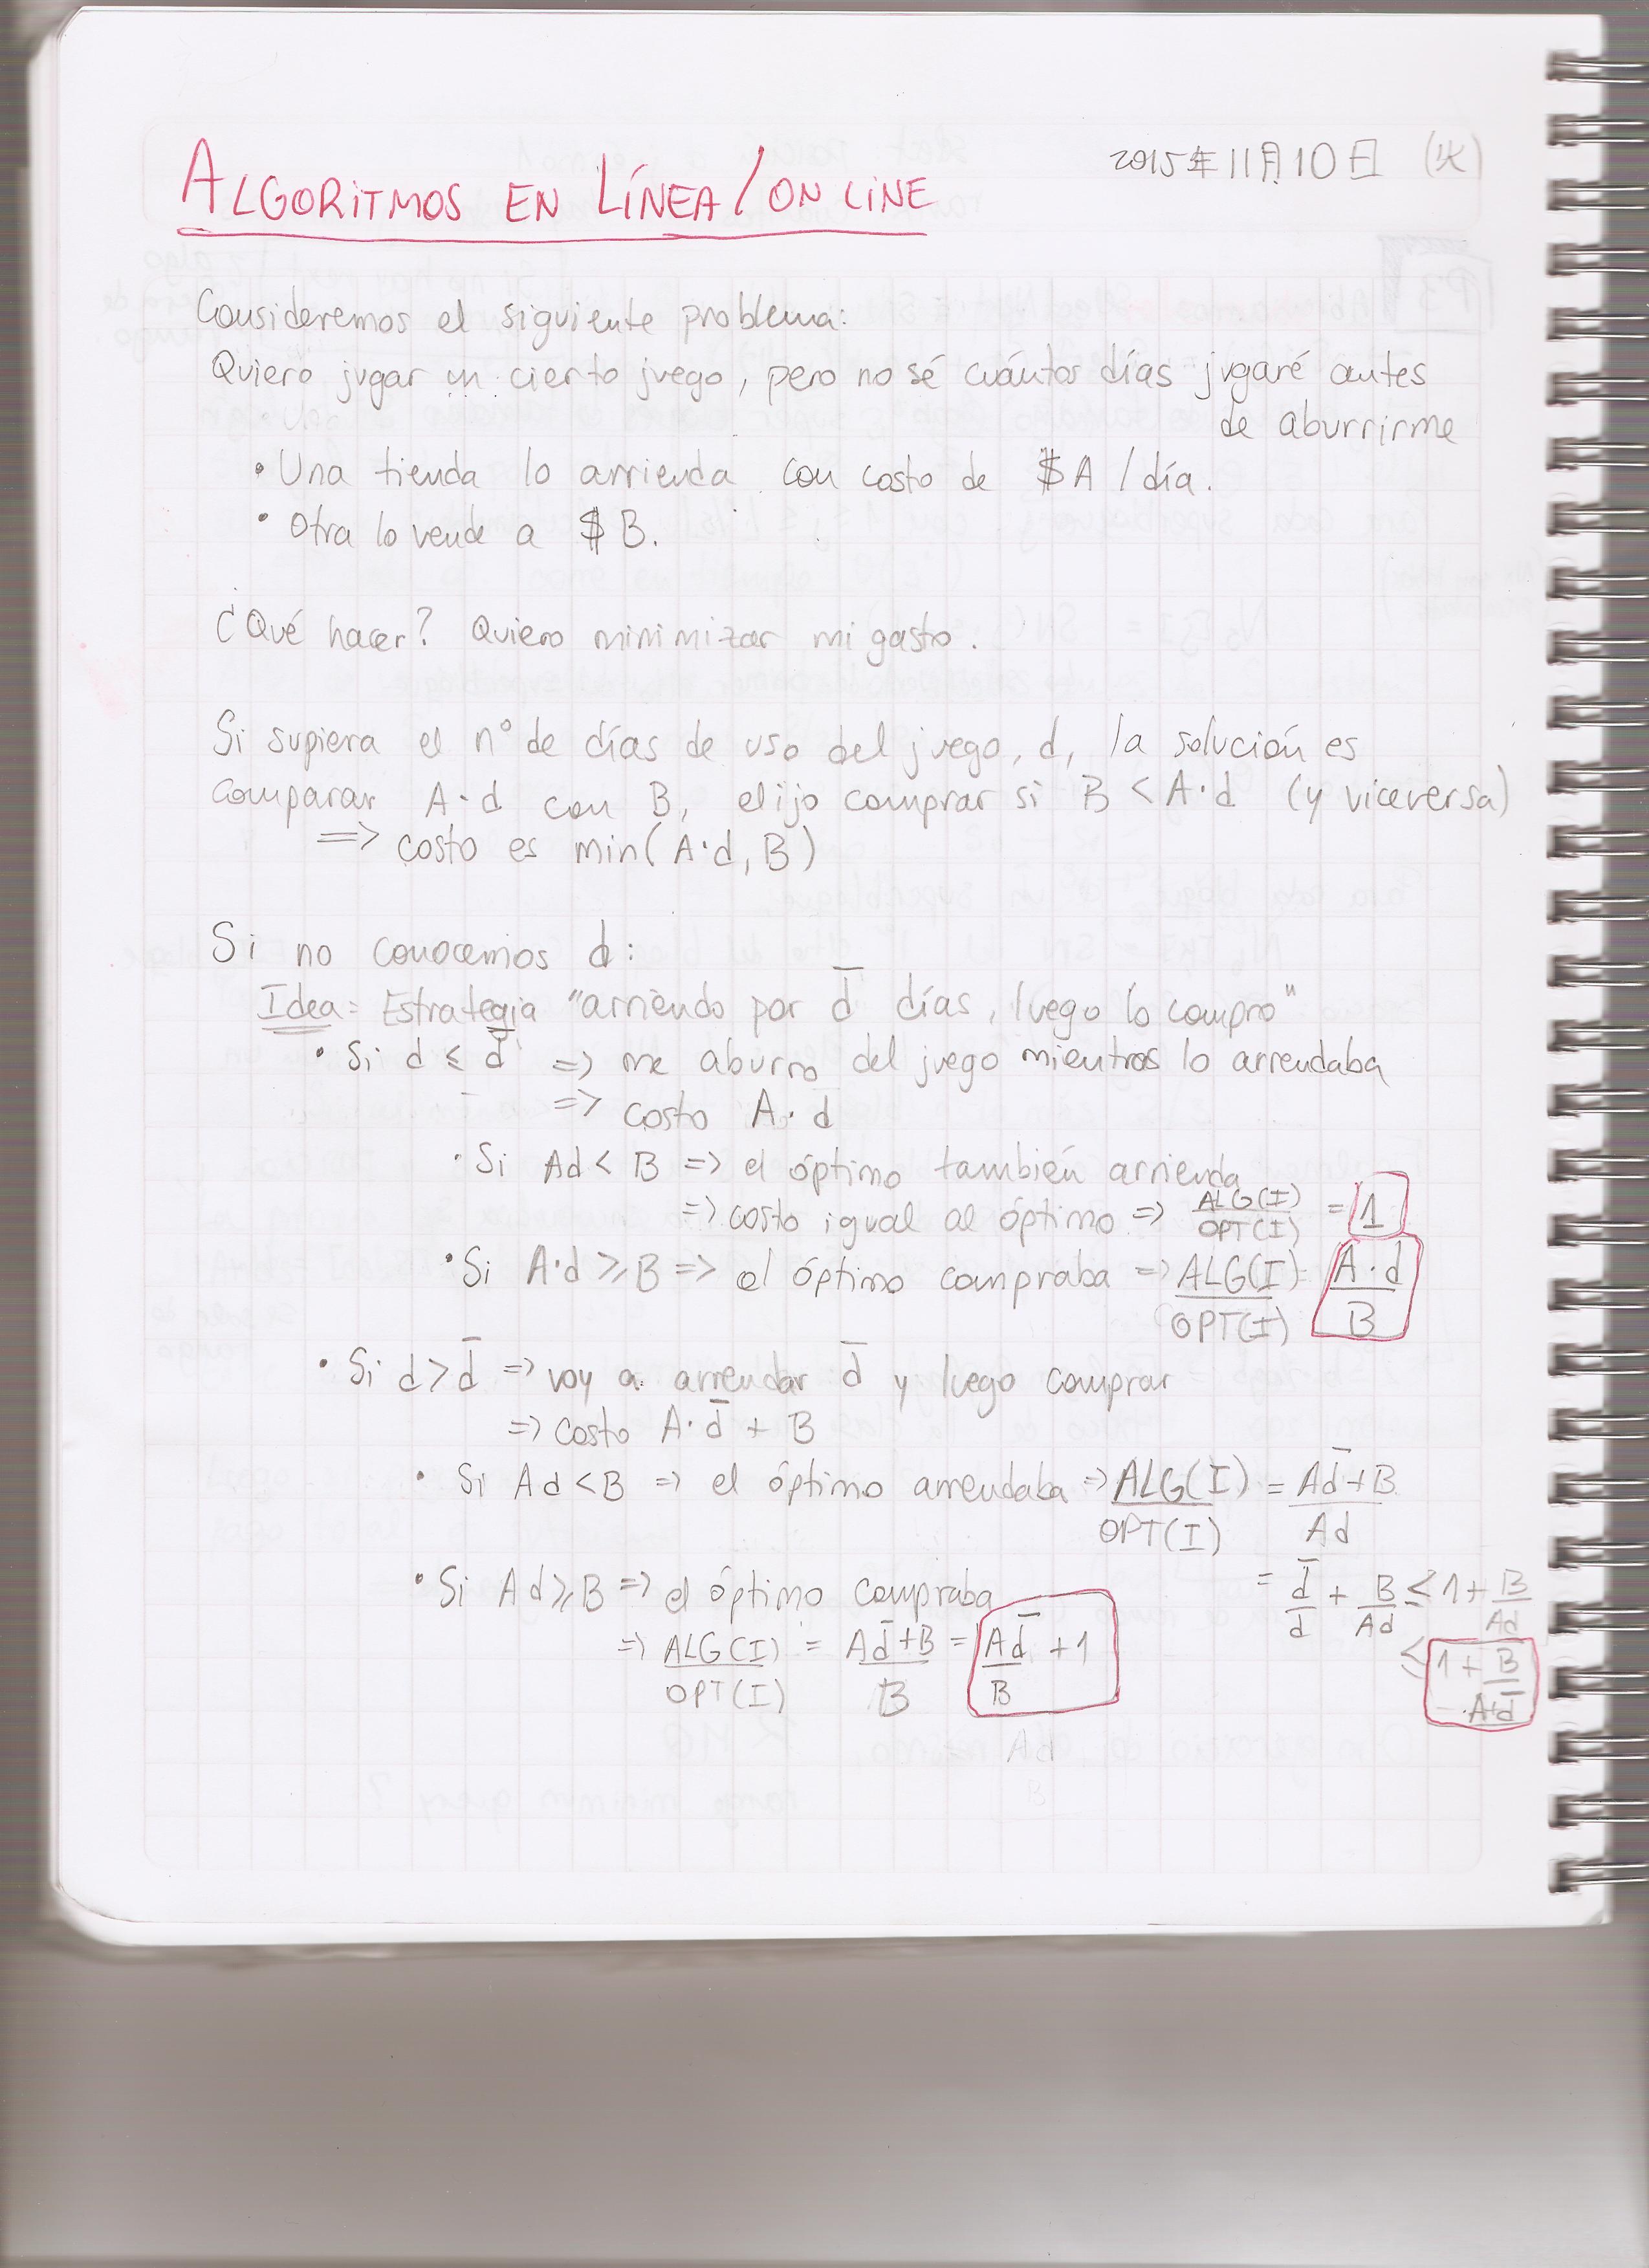 ALGORITMOS EN LÍNEA / ON LINE
2015年11月10日 (火)
Consideremos el siguiente problema:
Quiero jugar un cierto juego, pero no sé cuántos días jugaré antes
de aburrirme
• Una tienda lo arrienda con costo de $A / día.
• Otra lo vende a $B.
¿Qué hacer? Quiero minimizar mi gasto.
Si supiera el n° de días de uso del juego, d, la solución es
comparar A·d con B, elijo comprar si B < A·d (y viceversa)
=> costo es min(A·d, B)
Si no conocemos d:
Idea: Estrategia "arriendo por d̄ días, luego lo compro"
• Si d ≤ d̄ => me aburro del juego mientras lo arrendaba
=> costo A·d
• Si Ad < B => el óptimo también arrienda
=> costo igual al óptimo => ALG(I)/OPT(I) = 1
• Si A·d ≥ B => el óptimo compraba => ALG(I)/OPT(I) = A·d/B
• Si d > d̄ => voy a arrendar d̄ y luego comprar
=> costo A·d̄ + B
• Si Ad < B => el óptimo arrendaba => ALG(I)/OPT(I) = (Ad̄+B)/Ad
= d̄/d + B/Ad ≤ 1 + B/Ad
≤ 1 + B/A·d̄
• Si Ad ≥ B => el óptimo compraba
=> ALG(I)/OPT(I) = (Ad̄+B)/B = Ad̄/B + 1